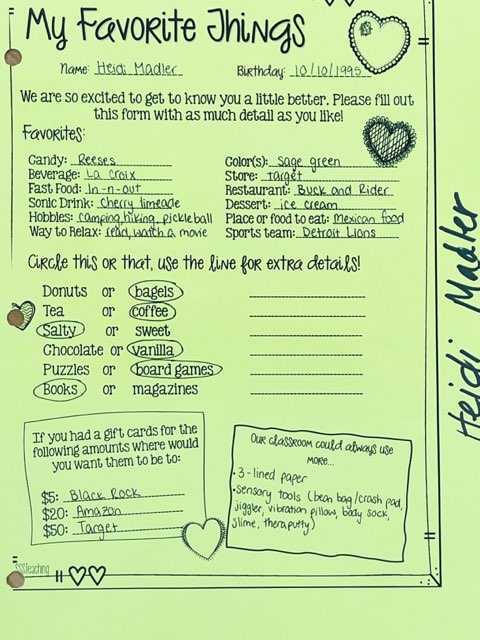 My Favorite Things
Name: Heidi Madler
Birthday: 10/10/1995
We are so excited to get to know you a little better. Please fill out
this form with as much detail as you like!
Favorites:
Candy: Reeses
Beverage: La Croix
Fast Food: In-n-out
Sonic Drink: Cherry limeade
Hobbies: camping, hiking, pickleball
Way to Relax: read, watch a movie
Color(s): Sage green
Store: Target
Restaurant: Buck and Rider
Dessert: ice cream
Place or food to eat: Mexican food
Sports team: Detroit Lions
Circle this or that, use the line for extra details!
Donuts or bagels
Tea or coffee
Salty or sweet
Chocolate or vanilla
Puzzles or board games
Books or magazines
If you had a gift cards for the
following amounts where would
you want them to be to:
$5: Black Rock
$20: Amazon
$50: Target
Our classroom could always use
more...
• 3-lined paper
• sensory tools (bean bag/crash pad,
jiggler, vibration pillow, body sock,
slime, theraputty)
SSSTeaching
Heidi Madler